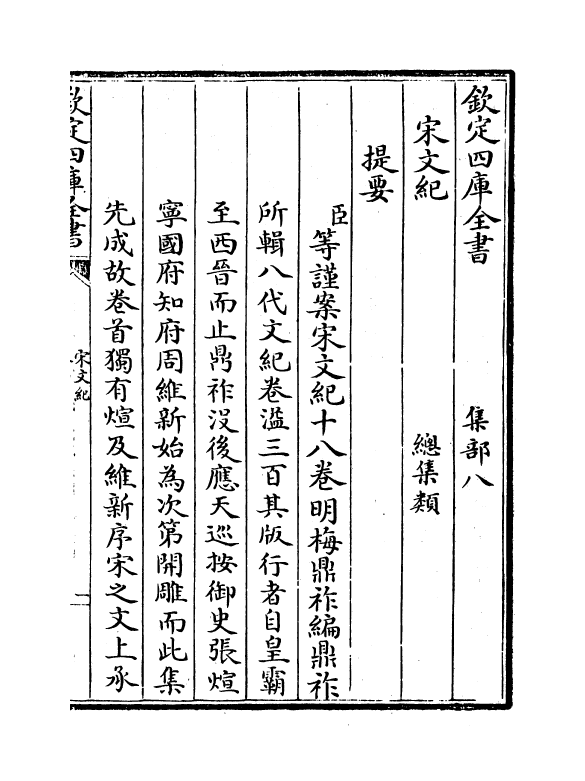 欽定四庫全書　集部八
宋文紀　總集類
提要
臣等謹案宋文紀十八卷明梅鼎祚編鼎祚
所輯八代文紀卷溢三百其版行者自皇霸
至西晉而止鼎祚沒後應天巡按御史張煊
寧國府知府周維新始為次第開雕而此集
先成故卷首獨有煊及維新序宋之文上承
欽定四庫全書
宋文紀